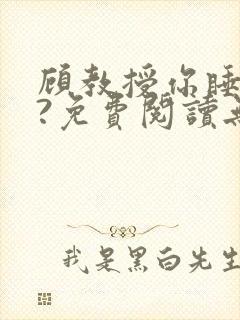 顾教授你睡
?免費閱讀
我是黑白先生